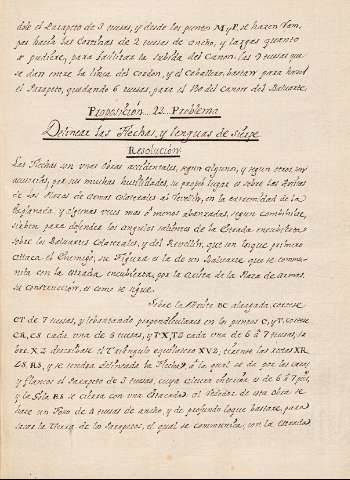 dole el Parapeto de 3 tuesas, y desde los puntos M, y P, se haran Ram,
pas hacia las Cortinas de 2 tuesas de ancho, y largas quanto
se pudiere, para facilitar la subida del Canon: las 9 tuesas que
se dan entre la linea del Cordon, y el Cavallero, bastan para
el Parapeto, quedando 6 tuesas, para el Uso del Canon del Baluarte.
Proposicion 22 Problema
Delinear las Flechas, y lenguas de sierpe
Resolucion.
Las Flechas son unas Obras accidentales, segun algunos, y segun otros
por sus muchas utilidades, su propio lugar es sobre las
de las Plazas de Armas Colaterales al Revellin, en la extremidad de la
Esplanada y algunas veces mas ó menos abanzadas, segun combiniere,
sirben para defender los angulos salientes de la Estrada encubierta
sobre los Baluartes Colaterales, y del Revellin, que son los que primero
ataca el Enemigo; su Figura es la de un Baluarte que se comu-
nica con la estrada encubierta, por la de la Plaza de armas.
su construccion es como se sigue.
Sobre la DC alargada, cortese
CT de 7 tuesas, y lebantando perpendiculares en los puntos C, y T, cortese
CR, CS cada una de 5 tuesas, y TX, TZ cada una de 6 á 7 tuesas, so
bre XZ describase el triangulo equilatero XVZ, tirense las rectas XR
ZS RS, y se tendra delineada la Flecha, á la qual se da por las caras,
y flancos el Parapeto de 3 tuesas, cuya altura es de 6 á 7 pies,
y la Gola RS se cierra con una Estacada. Al Rededor de esta Obra se
hace un Foso de 4 tuesas de ancho, y de profundo loque bastare, para
sacar la tierra de los Parapetos, el qual se comunica, con la Estrada